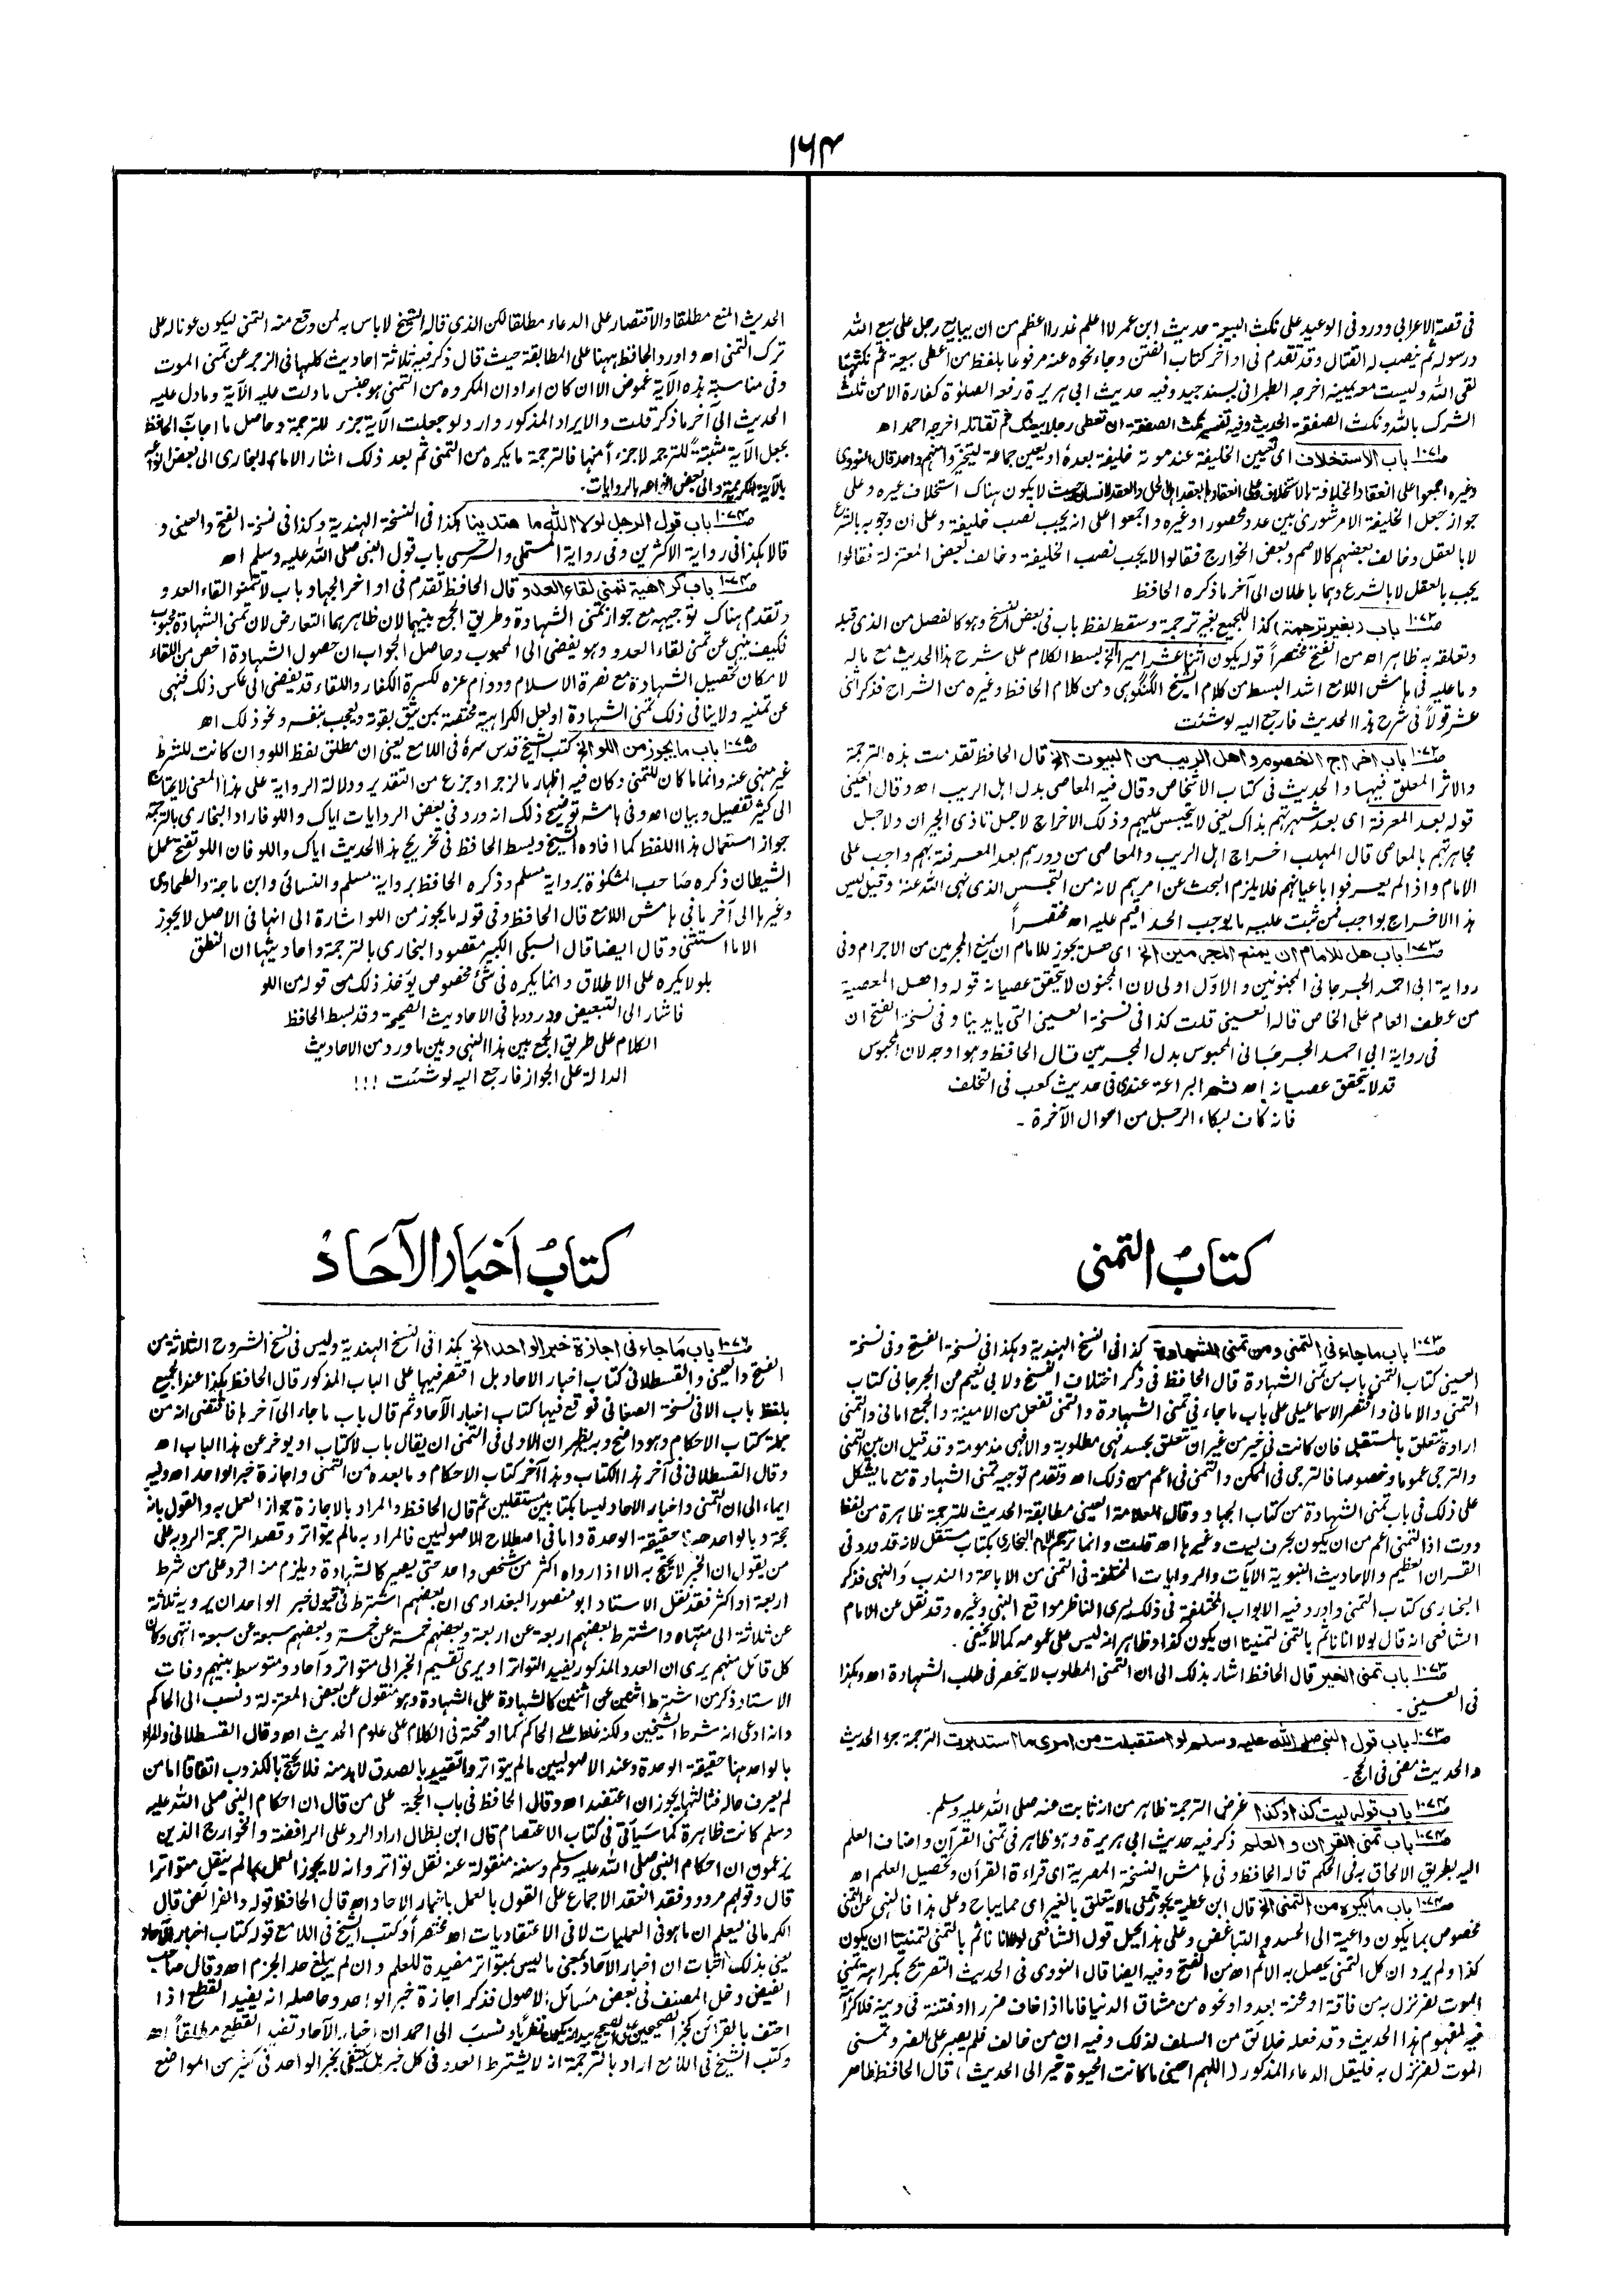 ١٦٤
فى قصة الاعرابى وورد فى الوعيد على نكث البيعة حديث ابن عمر لا اعلم غدرا اعظم من ان يبايع رجل على بيع الله
ورسوله ثم ينصب له القتال وقد تقدم فى اواخر كتاب الفتن وجاء نحوه عنه مرفوعا بلفظ من اعطى بيعة ثم نكثها
لقى الله وليست معه يمينه اخرجه الطبرانى بسند جيد وفيه حديث ابى هريرة رفعه الصلوٰة كفارة الا من ثلث
الشرك بالله ونكث الصفقة الحديث وفيه تفسير نكث الصفقة ان تعطى رجلا بيعتك ثم تقاتله اخرجه احمد اھ
ص١٠٧١ باب الاستخلاف اى تعيين الخليفة عند موته خليفة بعده او يعين جماعة ليتخيروا منهم واحدا قال النووى
وغيره اجمعوا على انعقاد الخلافة بالاستخلاف وعلى انعقادها بعقد اهل الحل والعقد لانسان حيث لا يكون هناك استخلاف غيره وعلى
جواز جعل الخليفة الامر شورى بين عدد محصور او غيره واجمعوا على انه يجب نصب خليفة وعلى ان وجوبه بالشرع
لا بالعقل وخالف بعضهم كالاصم وبعض الخوارج فقالوا لا يجب نصب الخليفة وخالف بعض المعتزلة فقالوا
يجب بالعقل لا بالشرع وهما باطلان الى آخر ما ذكره الحافظ
ص١٠٧٢ باب (بغير ترجمة) كذا للجميع بغير ترجمة وسقط لفظ باب فى بعض النسخ وهو كالفصل من الذى قبله
وتعلقه به ظاهر اھ من الفتح مختصراً قوله يكون اثنا عشر اميرا الخ بسط الكلام على شرح هذا الحديث مع ماله
وما عليه فى هامش اللامع اشد البسط من كلام الشيخ الگنگوہى ومن كلام الحافظ وغيره من الشراح فذكر اثنى
عشر قولاً فى شرح هذا الحديث فارجع اليه لو شئت
ص١٠٧٢ باب اخراج الخصوم واهل الريب من البيوت الخ قال الحافظ تقدمت هذه الترجمة
والاثر المعلق فيها والحديث فى كتاب الاشخاص وقال فيه المعاصى بدل اهل الريب اھ وقال العينى
قوله بعد المعرفة اى بعد شهرتهم بذاك يعنى لا يتجسس عليهم وذلك الاخراج لاجل تاذى الجيران ولاجل
مجاهرتهم بالمعاصى قال المهلب اخراج اهل الريب والمعاصى من دورهم بعد المعرفة بهم واجب على
الامام واذا لم يعرفوا باعيانهم فلا يلزم البحث عن امرهم لانه من التجسس الذى نهى الله عنه وقيل ليس
هذا الاخراج بواجب فمن ثبت عليه ما يوجب الحد اقيم عليه اھ مختصراً
ص١٠٧٣ باب هل للامام ان يمنع المجرمين الخ اى هل يجوز للامام ان يمنع المجرمين من الاجرام وفى
رواية ابى احمد الجرجانى المجنونين والاوّل اولى لان المجنون لا يتحقق عصيانه قوله واهل المعصية
من عطف العام على الخاص قاله العينى قلت كذا فى نسخة العينى التى بايدينا وفى نسخة الفتح ان
فى رواية ابى احمد الجرجانى المحبوس بدل المجرمين قال الحافظ وهو اوجه لان المحبوس
قد لا يتحقق عصيانه اھ ثم البراعة عندى فى حديث كعب فى التخلف
فانه كان لبكاء الرجل من احوال الآخرة ۔
كتابُ التمنى
ص١٠٧٣ باب ما جاء فى التمنى ومن تمنى الشهادة كذا فى النسخ الهندية وهكذا فى نسخة الفتح وفى نسخة
العينى كتاب التمنى باب من تمنى الشهادة قال الحافظ فى ذكر اختلاف النسخ ولابى نعيم عن الجرجانى كتاب
التمنى والامانى واقتصر الاسماعيلى على باب ما جاء فى تمنى الشهادة والتمنى تفعل من الامنية والجمع امانى والتمنى
ارادة تتعلق بالمستقبل فان كانت فى خير من غير ان تتعلق بحسد فهى مطلوبة والا فهى مذمومة وقد قيل ان بين التمنى
والترجى عموما وخصوصا فالترجى فى الممكن والتمنى فى اعم من ذلك اھ وتقدم توجيه تمنى الشهادة مع ما يشكل
على ذلك فى باب تمنى الشهادة من كتاب الجهاد وقال العلامة العينى مطابقة الحديث للترجمة ظاهرة من لفظ
وددت اذ التمنى اعم من ان يكون بحرف ليت وغيرها اھ قلت وانما ترجم الامام البخارى بكتاب مستقل لانه قد ورد فى
القرآن العظيم والاحاديث النبوية الآيات والروايات المختلفة فى التمنى من الاباحة والندب والنهى فذكر
البخارى كتاب التمنى واورد فيه الابواب المختلفة فى ذلك ليرى الناظر مواقع النهى وغيره وقد نقل عن الامام
الشافعى انه قال لولا انا ناثم بالتمنى لتمنينا ان يكون كذا وظاهر انه ليس على عمومه كما لا يخفى ۔
ص١٠٧٣ باب تمنى الخير قال الحافظ اشار بذلك الى ان التمنى المطلوب لا ينحصر فى طلب الشهادة اھ وهكذا
فى العينى ۔
ص١٠٧٣ باب قول النبى صلى الله عليه وسلم لو استقبلت من امرى ما استدبرت الترجمة جزء الحديث
والحديث مضى فى الحج ۔
ص١٠٧٤ باب قوله ليت كذا وكذا غرض الترجمة ظاهر من انه ثابت عنه صلى الله عليه وسلم ۔
ص١٠٧٤ باب تمنى القرآن والعلم ذكر فيه حديث ابى هريرة وهو ظاهر فى تمنى القرآن واضاف العلم
اليه بطريق الالحاق به فى الحكم قاله الحافظ وفى هامش النسخة المصرية اى قراءة القرآن وتحصيل العلم اھ
ص١٠٧٤ باب ما يكره من التمنى الخ قال ابن عطية يجوز تمنى ما لا يتعلق بالغير اى مما يباح وعلى هذا فالنهى عن التمنى
مخصوص بما يكون داعية الى الحسد والتباغض وعلى هذا يحمل قول الشافعى لولا انا ناثم بالتمنى لتمنينا ان يكون
كذا ولم يرد ان كل التمنى يحصل به الاثم اھ من الفتح وفيه ايضا قال النووى فى الحديث التصريح بكراهة تمنى
الموت لضر نزل به من فاقة او محنة بعدو ونحوه من مشاق الدنيا فاما اذا خاف ضررا او فتنة فى دينه فلا كراهة
فيه لمفهوم هذا الحديث وقد فعله خلائق من السلف لذلك وفيه ان من خالف فلم يصبر على الضر وتمنى
الموت لضر نزل به فليقل الدعاء المذكور (اللهم احينى ما كانت الحيوة خيرا لى الحديث) قال الحافظ ظاهر
الحديث المنع مطلقا والاقتصار على الدعاء مطلقا لكن الذى قاله الشيخ لا باس به لمن وقع منه التمنى ليكون عونا له على
ترك التمنى اھ واورد الحافظ ههنا على المطابقة حيث قال ذكر فيه ثلاثة احاديث كلها فى الزجر عن تمنى الموت
وفى مناسبة هذه الآية غموض الا ان كان اراد ان المكروه من التمنى هو جنس ما دلت عليه الآية وما دل عليه
الحديث الى آخر ما ذكر قلت والايراد المذكور وارد لو جعلت الآية جزء للترجمة وحاصل ما اجاب الحافظ
بجعل الآية مثبتة للترجمه لا جزء منها فالترجمة ما يكره من التمنى ثم بعد ذلك اشار الامام البخارى الى بعض انواعه
بالآية الكريمة والى بعض انواعه بالروايات ۔
ص١٠٧٤ باب قول الرجل لولا الله ما اهتدينا هكذا فى النسخة الهندية وكذا فى نسخة الفتح والعينى و
قالا هكذا فى رواية الاكثرين وفى رواية المستملى والسرخسى باب قول النبى صلى الله عليه وسلم اھ
ص١٠٧٤ باب كراهية تمنى لقاء العدو قال الحافظ تقدم فى اواخر الجهاد باب لا تتمنوا لقاء العدو و
وتقدم هناك توجيهه مع جواز تمنى الشهادة وطريق الجمع بينهما لان ظاهرهما التعارض لان تمنى الشهادة محبوب
فكيف ينهى عن تمنى لقاء العدو وهو يفضى الى المحبوب وحاصل الجواب ان حصول الشهادة اخص من اللقاء
لامكان تحصيل الشهادة مع نصرة الاسلام ودوام عزه لكسرة الكفار واللقاء قد يفضى الى عكس ذلك فنهى
عن تمنيه ولا ينافى ذلك تمنى الشهادة او لعل الكراهية مختصة بمن يثق بقوته ويعجب بنفسه ونحو ذلك اھ
ص١٠٧٥ باب ما يجوز من اللو الخ كتب الشيخ قدس سره فى اللامع يعنى ان مطلق لفظ اللو وان كانت للشرط
غير منهى عنه وانما ما كان للتمنى وكان فيه اظهار مالزجر او جزع من التقدير ودلالة الرواية على هذا المعنى لا يحتاج
الى كثير تفصيل وبيان اھ وفى هامشه توضيح ذلك انه ورد فى بعض الروايات اياك واللو فاراد البخارى بالترجمة
جواز استعمال هذا اللفظ كما افاده الشيخ وبسط الحافظ فى تخريج هذا الحديث اياك واللو فان اللو تفتح عمل
الشيطان ذكره صاحب المشكوٰة برواية مسلم وذكره الحافظ برواية مسلم والنسائى وابن ماجة والطحاوى
وغيرها الى آخر ما فى هامش اللامع قال الحافظ وفى قوله ما يجوز من اللو اشارة الى انها فى الاصل لا يجوز
الا ما استثنى وقال ايضا قال السبكى الكبير مقصود البخارى بالترجمة واحاديثها ان النطق
بلو لا يكره على الاطلاق وانما يكره فى شئ مخصوص يؤخذ ذلك من قوله من اللو
فاشار الى التبعيض وورودها فى الاحاديث الصحيحة وقد بسط الحافظ
الكلام على طريق الجمع بين هذا النهى وبين ما ورد من الاحاديث
الدالة على الجواز فارجع اليه لو شئت !!!
كتابُ اَخبَار الآحَاد
ص١٠٧٦ باب مَا جاء فى اجازة خبر الواحد الخ هكذا فى النسخ الهندية وليس فى نسخ الشروح الثلاثة من
الفتح والعينى والقسطلانى كتاب اخبار الآحاد بل اقتصر فيها على الباب المذكور قال الحافظ هكذا عند الجميع
بلفظ باب الا فى نسخة الصغانى فوقع فيها كتاب اخبار الآحاد ثم قال باب ما جاء الى آخرها فاقتضى انه من
جملة كتاب الاحكام وهو واضح وبه يظهر ان الاولى فى التمنى ان يقال باب لا كتاب او يوخر عن هذا الباب اھ
وقال القسطلانى فى آخر هذا الكتاب وهذا آخر كتاب الاحكام وما بعده من التمنى واجازة خبر الواحد اھ وفيه
ايماء الى ان التمنى واخبار الآحاد ليسا بكتابين مستقلين ثم قال الحافظ والمراد بالاجازة جواز العمل به والقول بانه
حجة وبالواحد هنا حقيقة الوحدة واما فى اصطلاح الاصوليين فالمراد به ما لم يتواتر وقصد الترجمة الرد به على
من يقول ان الخبر لا يحتج به الا اذا رواه اكثر من شخص واحد حتى يصير كالشهادة ويلزم منه الرد على من شرط
اربعة او اكثر فقد نقل الاستاد ابو منصور البغدادى ان بعضهم اشترط فى قبول خبر الواحد ان يرويه ثلاثة
عن ثلاثة الى منتهاه واشترط بعضهم اربعة عن اربعة وبعضهم خمسة عن خمسة وبعضهم سبعة عن سبعة انتهى وكان
كل قائل منهم يرى ان العدد المذكور يفيد التواتر او يرى تقسيم الخبر الى متواتر وآحاد ومتوسط بينهم وفات
الاستاد ذكر من اشترط اثنين عن اثنين كالشهادة على الشهادة وهو منقول عن بعض المعتزلة ونسب الى الحاكم
وانه ادعى انه شرط الشيخين ولكنه غلط على الحاكم كما اوضحته فى الكلام على علوم الحديث اھ وقال القسطلانى والمراد
بالواحد هنا حقيقة الوحدة وعند الاصوليين ما لم يتواتر والتقييد بالصدق لا بد منه فلا يحتج بالكذوب اتفاقا اما من
لم يعرف حاله فثالثها يجوز ان اعتضد اھ وقال الحافظ فى باب الحجة على من قال ان احكام النبى صلى الله عليه
وسلم كانت ظاهرة كما سيَأتى فى كتاب الاعتصام قال ابن بطال اراد الرد على الرافضة والخوارج الذين
يزعمون ان احكام النبى صلى الله عليه وسلم وسننه منقولة عنه نقل تواتر وانه لا يجوز العمل بما لم ينقل متواترا
قال وقولهم مردود فقد انعقد الاجماع على القول بالعمل باخبار الآحاد اھ قال الحافظ قوله والفرائض قال
الكرمانى ليعلم ان ما هو فى العمليات لا فى الاعتقاديات اھ مختصراً وكتب الشيخ فى اللامع قوله كتاب اخبار الآحاد
يعنى بذلك اثبات ان اخبار الآحاد بمعنى ما ليس بمتواتر مفيدة للعلم وان لم يبلغ حد الجزم اھ وقال صاحب
الفيض دخل المصنف فى بعض مسَائل الاصول فذكر اجازة خبر الواحد وحاصله انه يفيد القطع اذا
احتف بالقرائن كخبر الصحيحين على الصحيح بيد انه يكون نظرياً ونسبَ الى احمد ان اخبار الآحاد تفيد القطع مطلقاً اھ
وكتب الشيخ فى اللامع اراد بالترجمة انه لا يشترط العدد فى كل خبر بل يكتفى بخبر الواحد فى كثير من المواضع